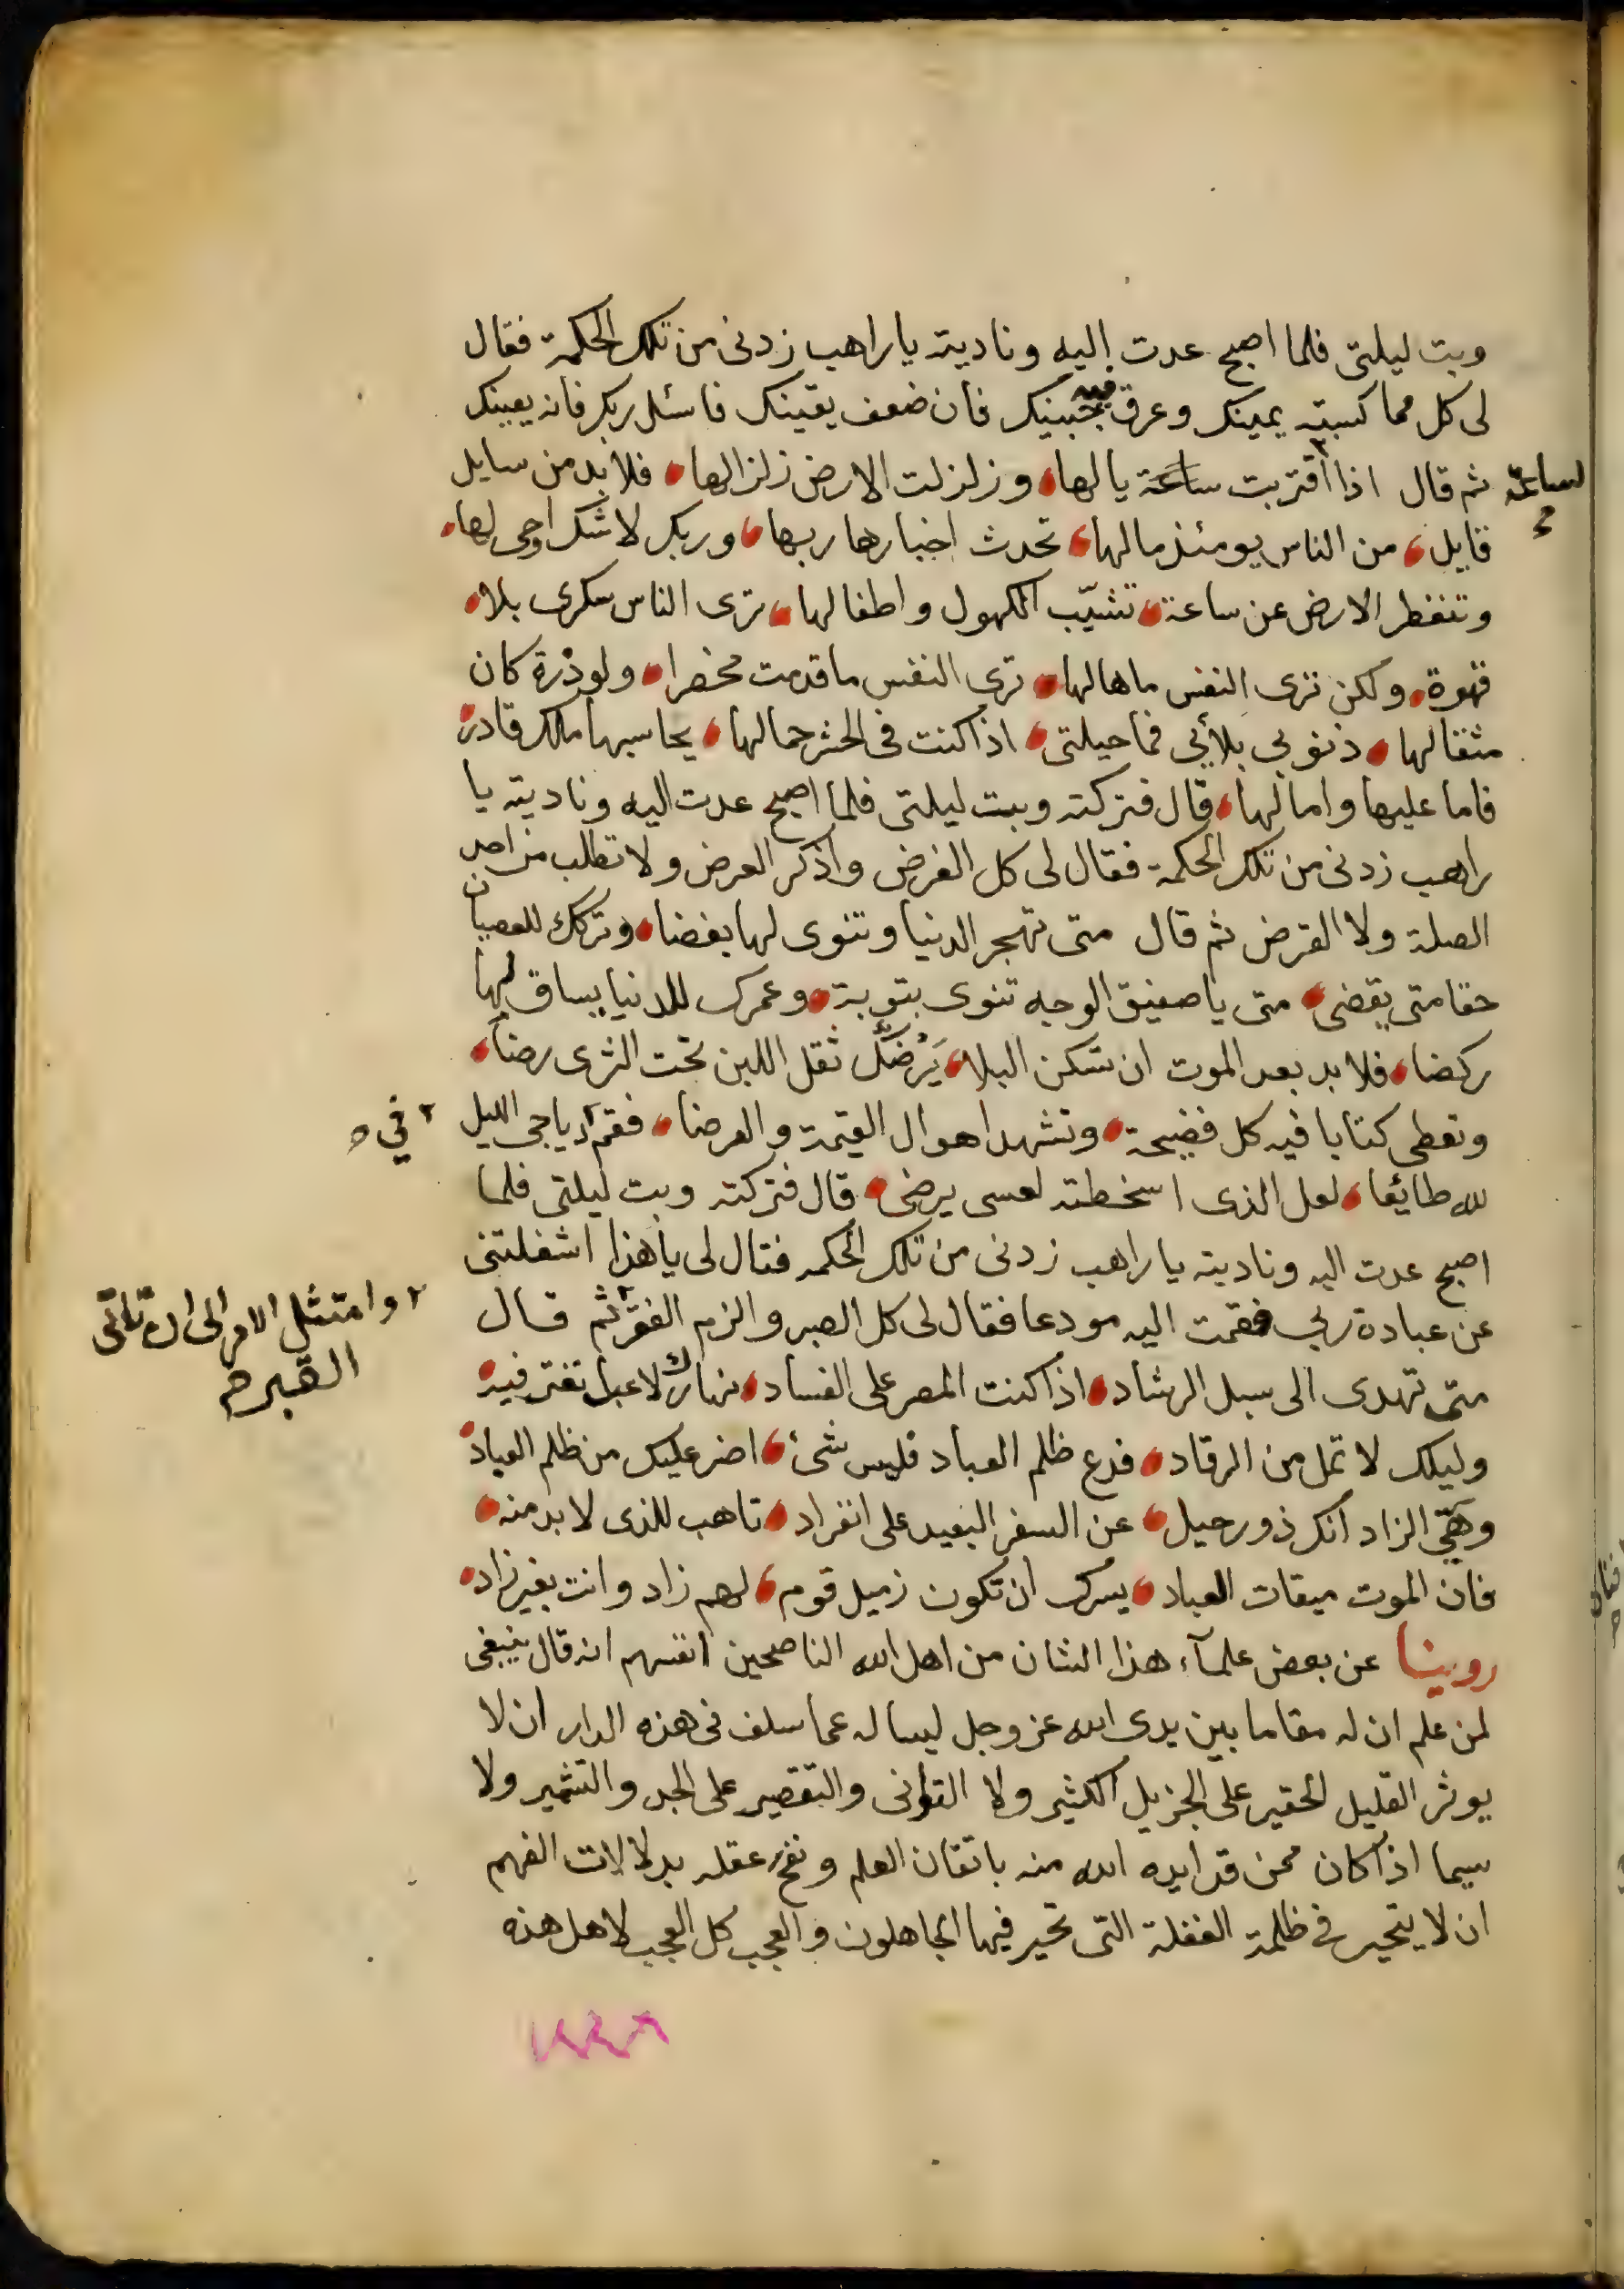 وبت ليلتى فلما اصبح عدت اليه وناديته ياراهب زدنى من تلك الحكمة فقال
لى كل مما كسبته يمينك وعرق فيه جبينك فان ضعف يقينك فاسئل ربك فانه يعينك
ثم قال اذا اقتربت ساعة يالها وزلزلت الارض زلزالها فلا بد من سايل
لساعة
قايل من الناس يومئذ مالها تحدث اخبارها ربها وربك لا شك اوحى لها
وتنفطر الارض عن ساعة تشيّب الكهول واطفالها ترى الناس سكرى بلا
قهوة ولكن ترى النفس ماهالها ترى النفس ماقدمت محضرا ولو ذرة كان
مثقالها ذنوبي بلائي فما حيلتى اذا كنت فى الحشر حمالها يحاسبها ملك قادر
فاما عليها واما لها قال فتركته وبت ليلتى فلما اصبح عدت اليه وناديته يا
راهب زدنى من تلك الحكمة فقال لى كل الفرض واذكر العرض ولا تطلب من احد
الصلة ولا القرض ثم قال متى تهجر الدنيا وتنوى لها بغضا وتركك للعصيان
حقا متى يقضى متى يا صفيق الوجه تنوى بتوبة وعمرك للدنيا يساق لها
ركضا فلا بد بعد الموت ان تسكن البلا يَرُضّك ثقل اللبن تحت الثرى رضا
وتعطى كتابا فيه كل فضيحة وتشهد اهوال القيمة والعرضا فقم دياجى الليل
في
لله طايئعا لعل الذى اسخطته لعسى يرضى قال فتركته وبت ليلتى فلما
اصبح عدت اليه وناديته ياراهب زدنى من تلك الحكمه فقال لى ياهذا اشغلتنى
عن عبادة ربي فقمت اليه مودعا فقال لى كل الصبر والزم الفقر ثم قال
وامتثل الامر الى ان تاتى
القبر
متى تهدى الى سبل الرشاد اذا كنت المصر على الفساد نهارك لاعبل تغتر فيه
وليلك لا تمل من الرقاد فدع ظلم العباد فليس شئ اضر عليك من ظلم العباد
وهَيّ الزاد انك ذو رحيل عن السفر البعيد على انفراد تاهب للذى لا بد منه
فان الموت ميقات العباد يسرك ان تكون زميل قوم لهم زاد وانت بغير زاد
روينا عن بعض علمآء هذا الشان من اهل الله الناصحين انفسهم انه قال ينبغى
لمن علم ان له مقاما بين يدى الله عز وجل ليساله عما سلف فى هذه الدار ان لا
يوثر القليل الحقير على الجزيل الكثير ولا التوانى والتقصير على الجد والتشمير ولا
سيما اذا كان ممن قد ايده الله منه باتقان العلم ونفح عقله بدلالات الفهم
ان لا يتحير فى ظلمة الغفلة التى تحير فيها الجاهلون والعجب كل العجب لاهل هذه